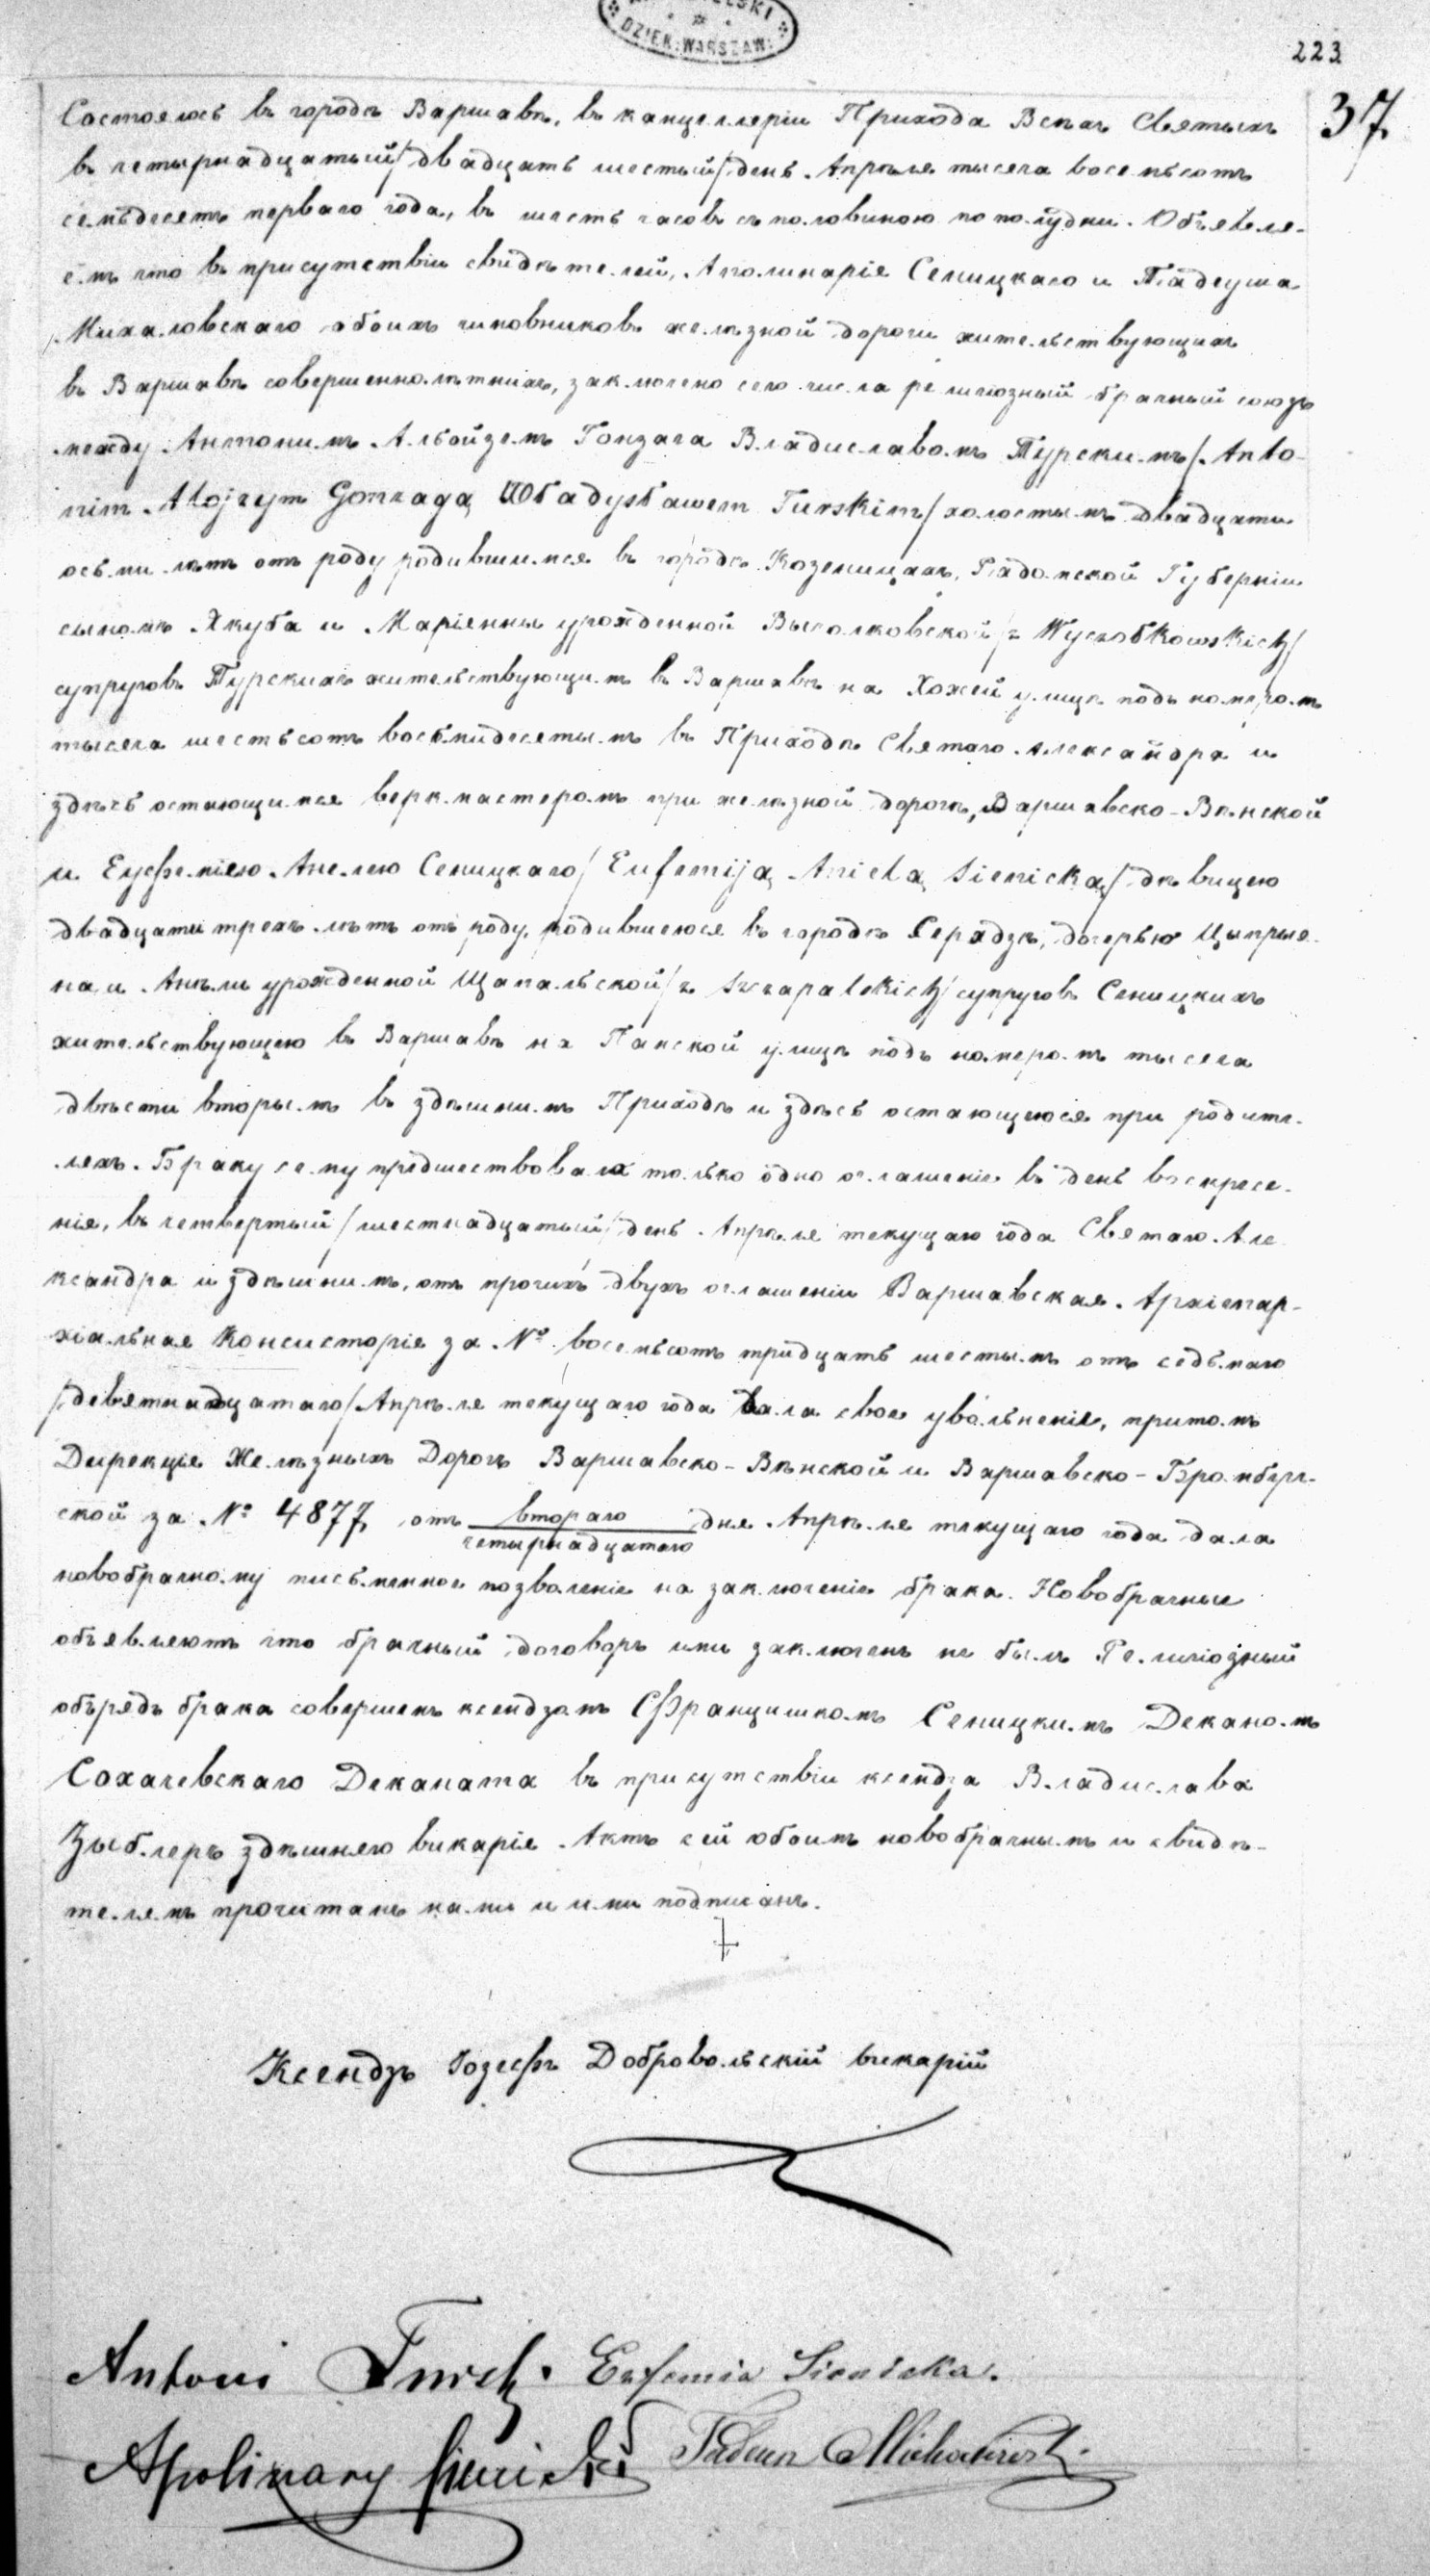 DZIEK. WARSZAW.
223
37
Состоялось въ городѣ Варшавѣ, въ канцелляріи Прихода Всѣхъ Святыхъ
въ четырнадцатый/двадцать шестый/день Апрѣля тысяча восемьсотъ
семьдесятъ перваго года, въ шесть часовъ съ половиною по полудни. Объявля-
емъ что въ присутствіи свидѣтелей, Аполинарія Сеницкаго и Тадеуша
Михаловскаго обоихъ чиновниковъ желѣзной дороги жительствующихъ
въ Варшавѣ совершеннолѣтнихъ, заключено сего числа религіозный брачный союзъ
между Антонимъ Алойземъ Гонзага Владиславомъ Турскимъ/Anto-
nim Alojzym Gonzagą Władysławem Turskim/холостымъ двадцати
осьми лѣтъ отъ роду родившимся въ городѣ Козеницахъ, Радомской Губерніи
сыномъ Якуба и Маріенны урожденной Высолковской/z Wyczołkowskich/
супруговъ Турскихъ жительствующимъ въ Варшавѣ на Хожей улицѣ подъ номеромъ
тысяча шестьсотъ восьмидесятымъ въ Приходѣ Святаго Александра и
здѣсь остающимся веркмастеромъ при желѣзной дорогѣ, Варшавско-Вѣнской
и Еуфеміею Анелею Сеницкаго/Eufemiją Anielą Sienicką/дѣвицею
двадцати трехъ лѣтъ отъ роду, родившеюся въ городѣ Серадзѣ, дочерью Цыпрыя-
на и Анѣли урожденной Щапальской/z Szczapalskich/супруговъ Сеницкихъ
жительствующею въ Варшавѣ на Панской улицѣ подъ номеромъ тысяча
двѣсти вторымъ въ здѣшнимъ Приходѣ и здѣсь остающеюся при родите-
ляхъ. Браку сему предшествовала только одно оглашеніе въ день воскресе-
нія, въ четвертый/шестнадцатый/день Апрѣля текущаго года Святаго Але-
ксандра и здѣшнимъ, отъ прочихъ двухъ оглашеніи Варшавская Архіепар-
хіальная Консисторія за № восемьсотъ тридцать шестымъ отъ седьмаго
/девятнадцатаго/Апрѣля текущаго года дала свое увольненіе, притомъ
Дирекція Желѣзныхъ Дорогъ Варшавско-Вѣнской и Варшавско-Бромберг-
ской за № 4877 отъ втораго четырнадцатаго дня Апрѣля текущаго года дала
новобрачному письменное позволеніе на заключеніе брака. Новобрачные
объявляютъ что брачный договоръ ими заключенъ не былъ Религіозный
обърядъ брака совершенъ ксендзомъ Францишкомъ Сеницкимъ Деканомъ
Сохачевскаго Деканата въ присутствіи ксендза Владислава
Зыблеръ здѣшняго викарія Актъ сей обоимъ новобрачнымъ и свидѣ-
телямъ прочитанъ нами и ими подписанъ.
Ксендзъ Іозефъ Добровольскій викарій
Antoni Turski. Eufemia Sienicka.
Apolinary Sienicki Tadeusz Michałowski.